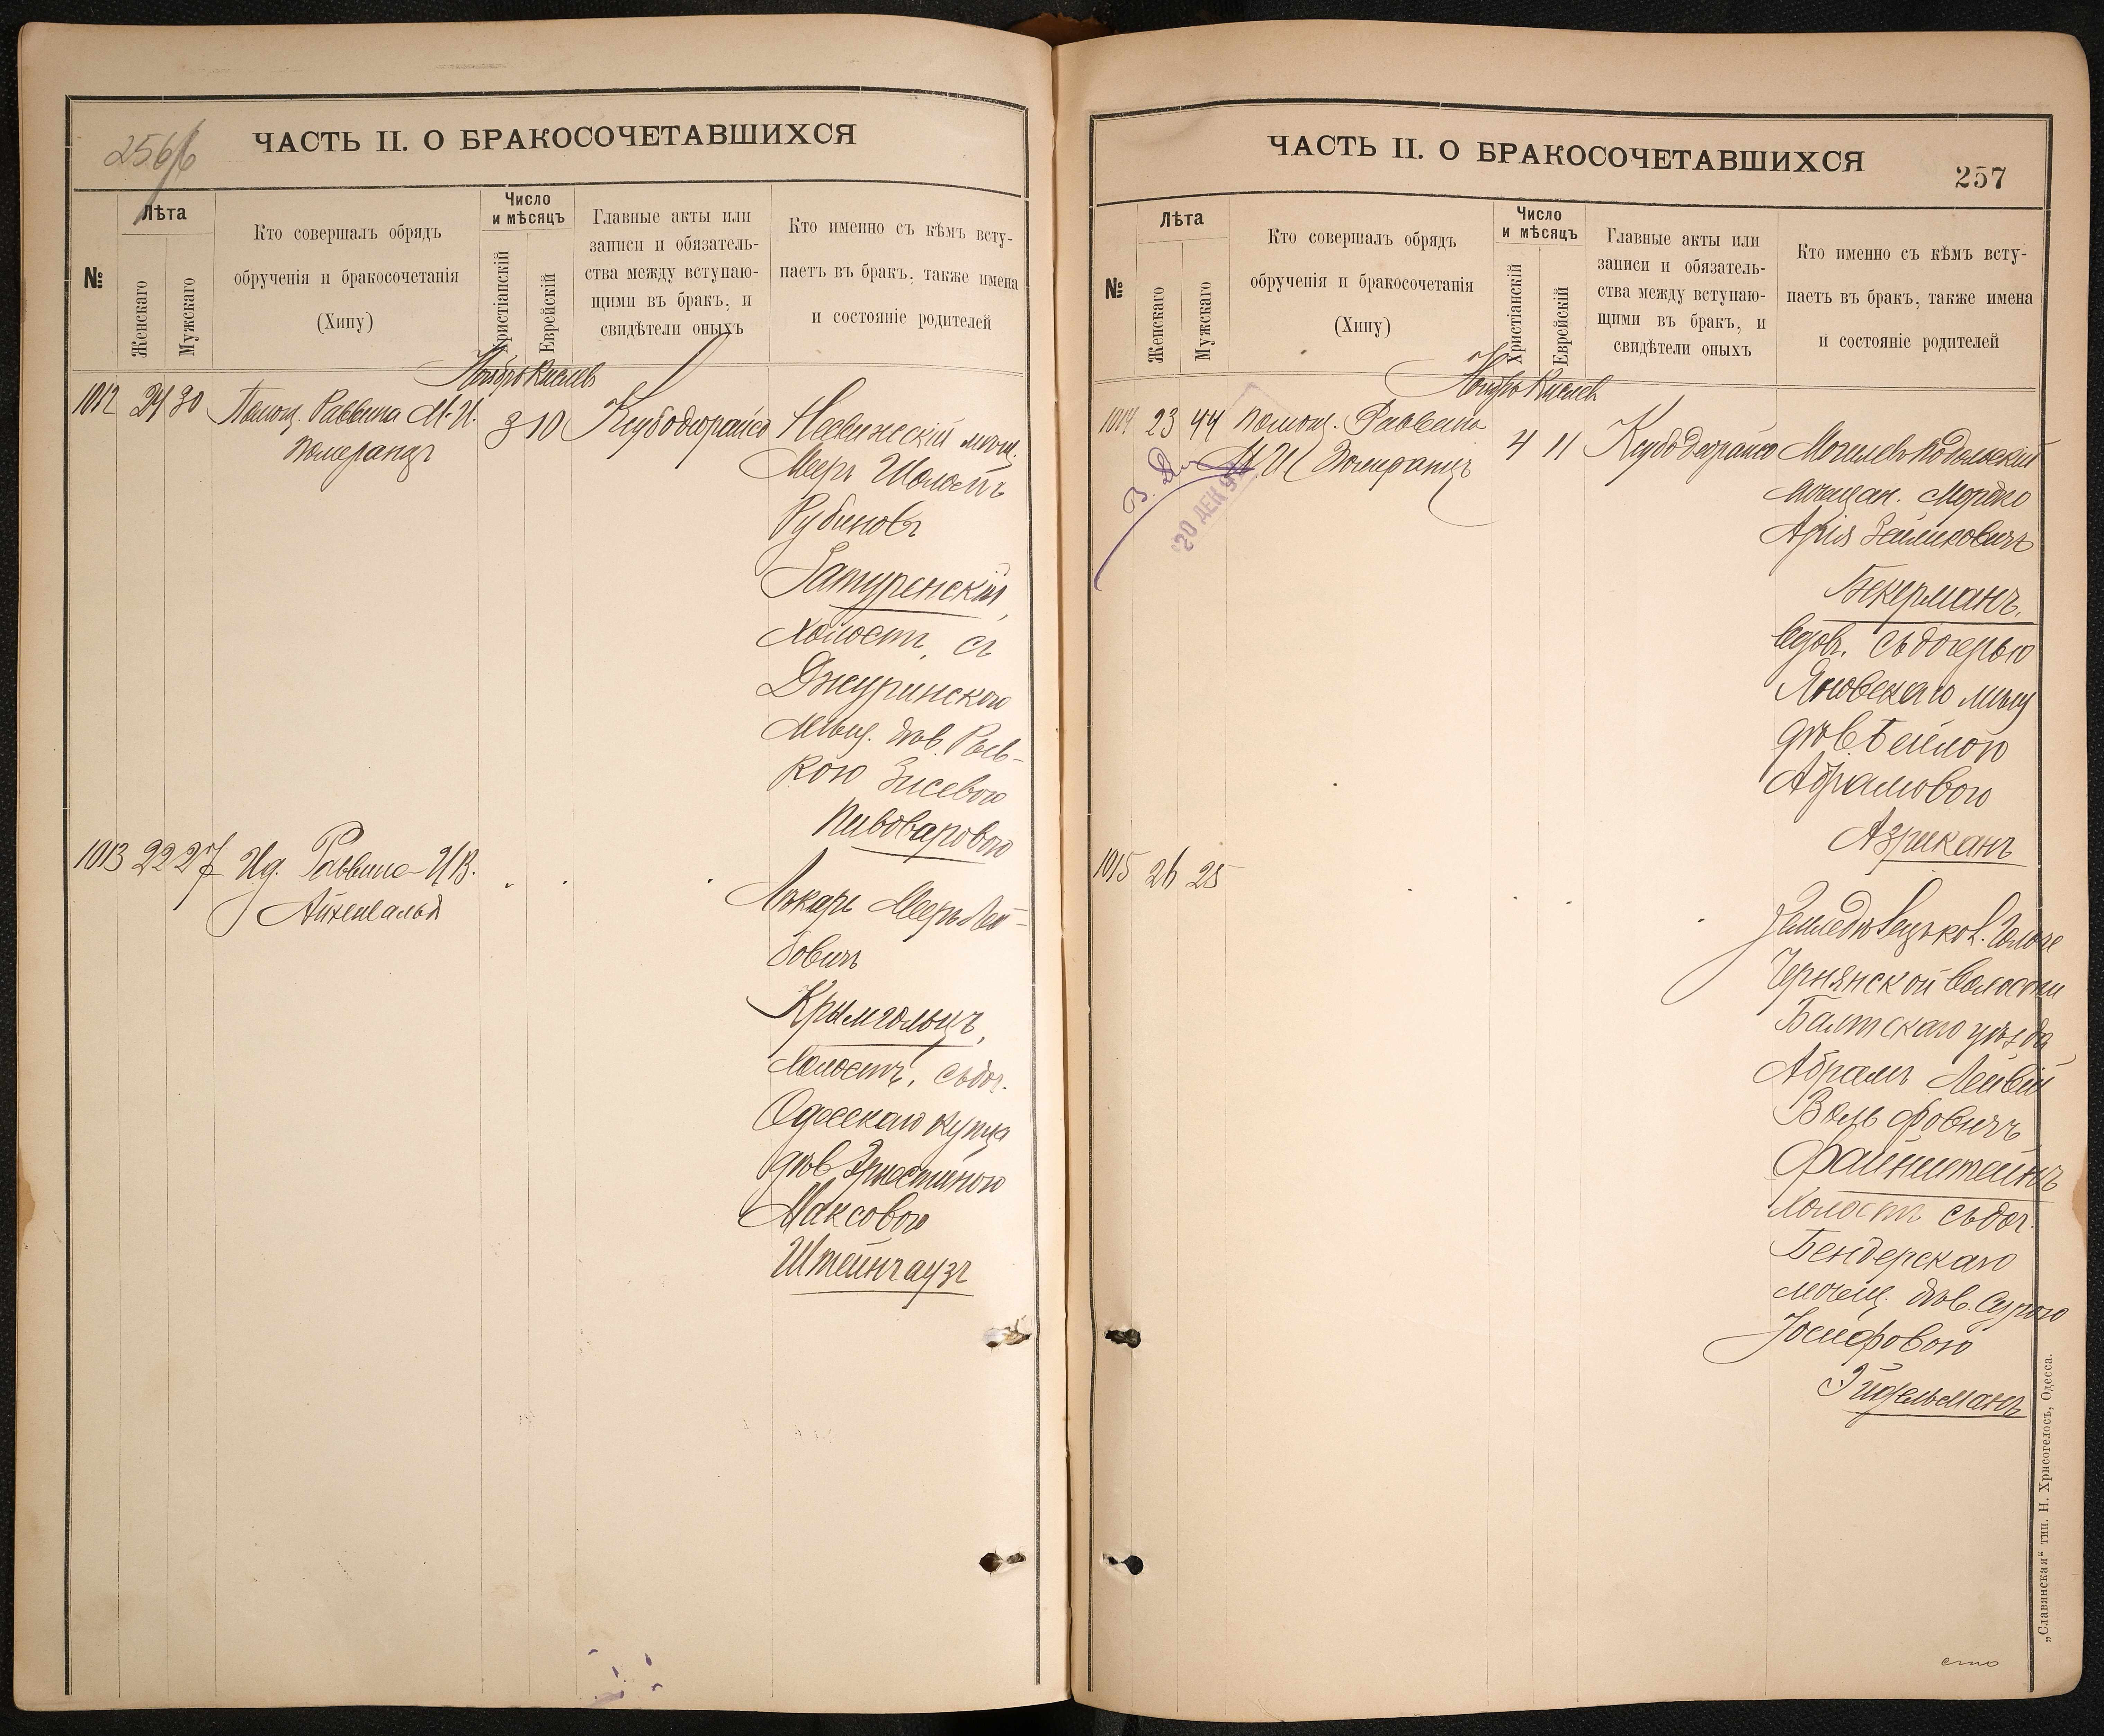 256
ЧАСТЬ II. О БРАКОСОЧЕТАВШИХСЯ
№
Лѣта
Женскаго
Мужскаго
Кто совершалъ обрядъ
обрученія и бракосочетанія
(Хипу)
Число
и мѣсяцъ
Христіанскій
Еврейскій
Главные акты или
записи и обязатель-
ства между вступаю-
щими въ бракъ, и
свидѣтели оныхъ
Кто именно съ кѣмъ всту-
паетъ въ бракъ, также имена
и состояніе родителей
Ноябрь Кислевъ
1012 24 30 Помощ. Раввина М. И.
Померанцъ
3 10
мѣщ.
Мееръ Шоломъ
Рубиновъ
Затуренскій,
холостъ, съ
Джуринскою
мѣщ. дѣв. Рось-
кою Зисевою
Пивоваровою
1013 22 27 Ид. Раввина И.В.
Айхенвальд
Лѣкарь Мееръ Лей-
бовичъ
Крымгольцъ,
холостъ, съ доч.
Одесскаго купца
дѣв. Эрнестиною
Максовою
Штейнгаузъ
ЧАСТЬ II. О БРАКОСОЧЕТАВШИХСЯ
257
№
Лѣта
Женскаго
Мужскаго
Кто совершалъ обрядъ
обрученія и бракосочетанія
(Хипу)
Число
и мѣсяцъ
Христіанскій
Еврейскій
Главные акты или
записи и обязатель-
ства между вступаю-
щими въ бракъ, и
свидѣтели оныхъ
Кто именно съ кѣмъ всту-
паетъ въ бракъ, также имена
и состояніе родителей
Ноябрь Кислев
1014 23 44 Помощ. Раввина
М. И. Померанцъ
4 11
20 ДЕК 9
Могилевъ Подольскій
мѣщан. Мордко
Арія Зейликовичъ
Бекерманъ,
вдов. съ дочерью
Яновскаго мѣщ
дѣв. Бейлою
Абрамовою
Азриканъ
1015 26 25
Чернянской волости
Балтскаго уѣзда
Абрамъ Лейбій
Вольфовичъ
Файнштейнъ
холостъ съ доч.
Бендерскаго
мѣщ. дѣв. Сурою
Іосифовою
Эйдельманъ
„Славянская“ тип. Н. Хрисогелосъ, Одесса.